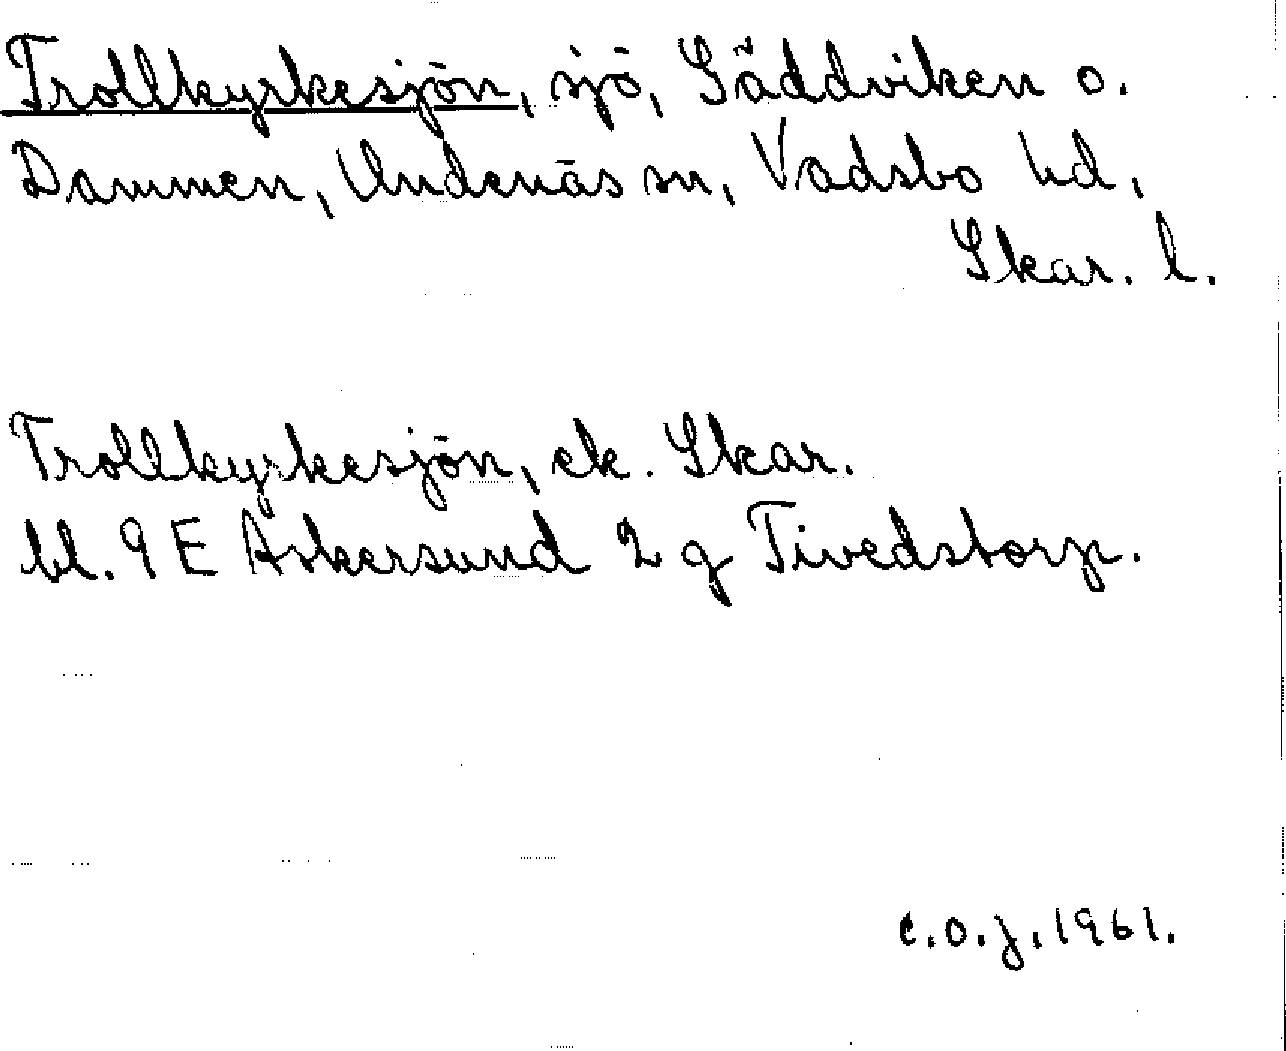 Trollkyrkesjön, sjö, Gäddviken o.
Dammen, Undenäs sn, Vadsbo hd,
Skar. l.
Trollkyrkesjön, ek. Skar.
bl. 9 E Askersund 2 g Tivedstorp.
C.O.J. 1961.